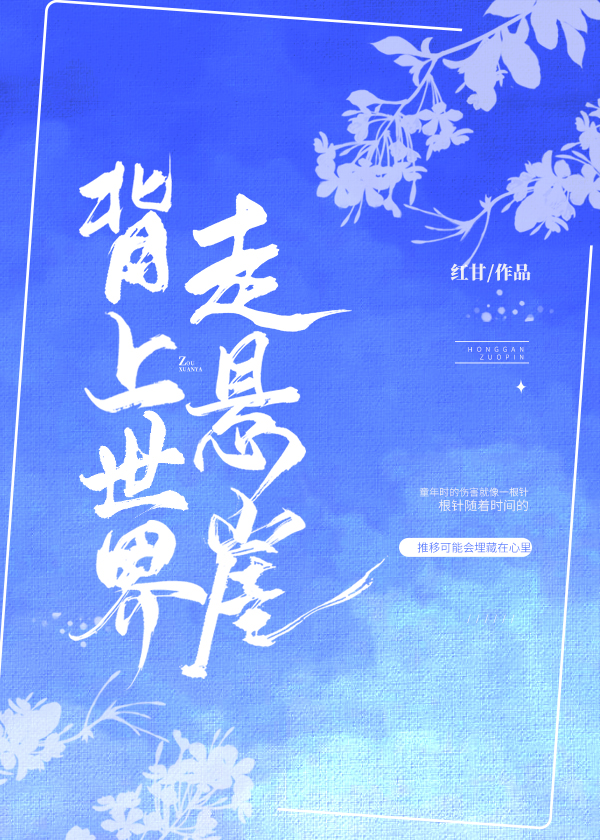 背上世界
走悬崖
ZOU
XUANYA
红甘/作品
HONGGAN
ZUOPIN
童年时的伤害就像一根针
根针随着时间的
推移可能会埋藏在心里